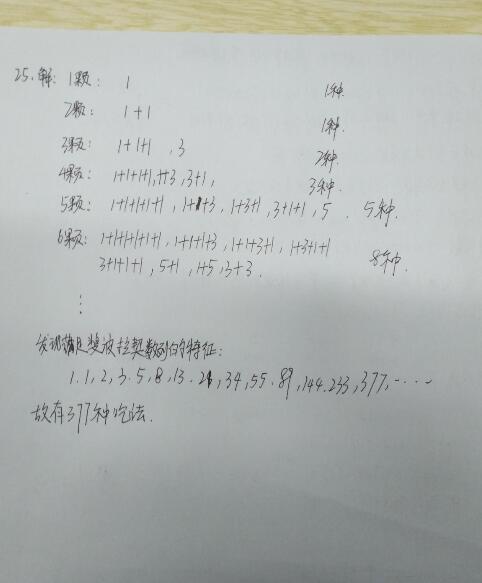 25.解: 1颗: 1 1种.
2颗: 1+1 1种.
3颗: 1+1+1 ,3 2种.
4颗: 1+1+1+1,1+3,3+1, 3种.
5颗: 1+1+1+1+1,1+1+3,1+3+1,3+1+1,5. 5种.
6颗: 1+1+1+1+1+1,1+1+1+3,1+1+3+1,1+3+1+1
3+1+1+1,5+1,1+5,3+3. 8种.
⋮
发现满足斐波拉契数列的特征:
1.1,2,3.5,8,13.21,34,55.89,144.233,377,......
故有377种吃法.